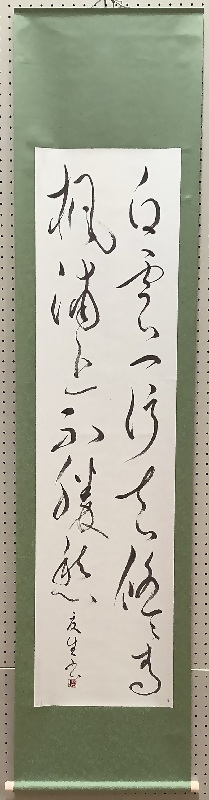 白雲一片去悠々青
楓浦上不勝愁
友生書